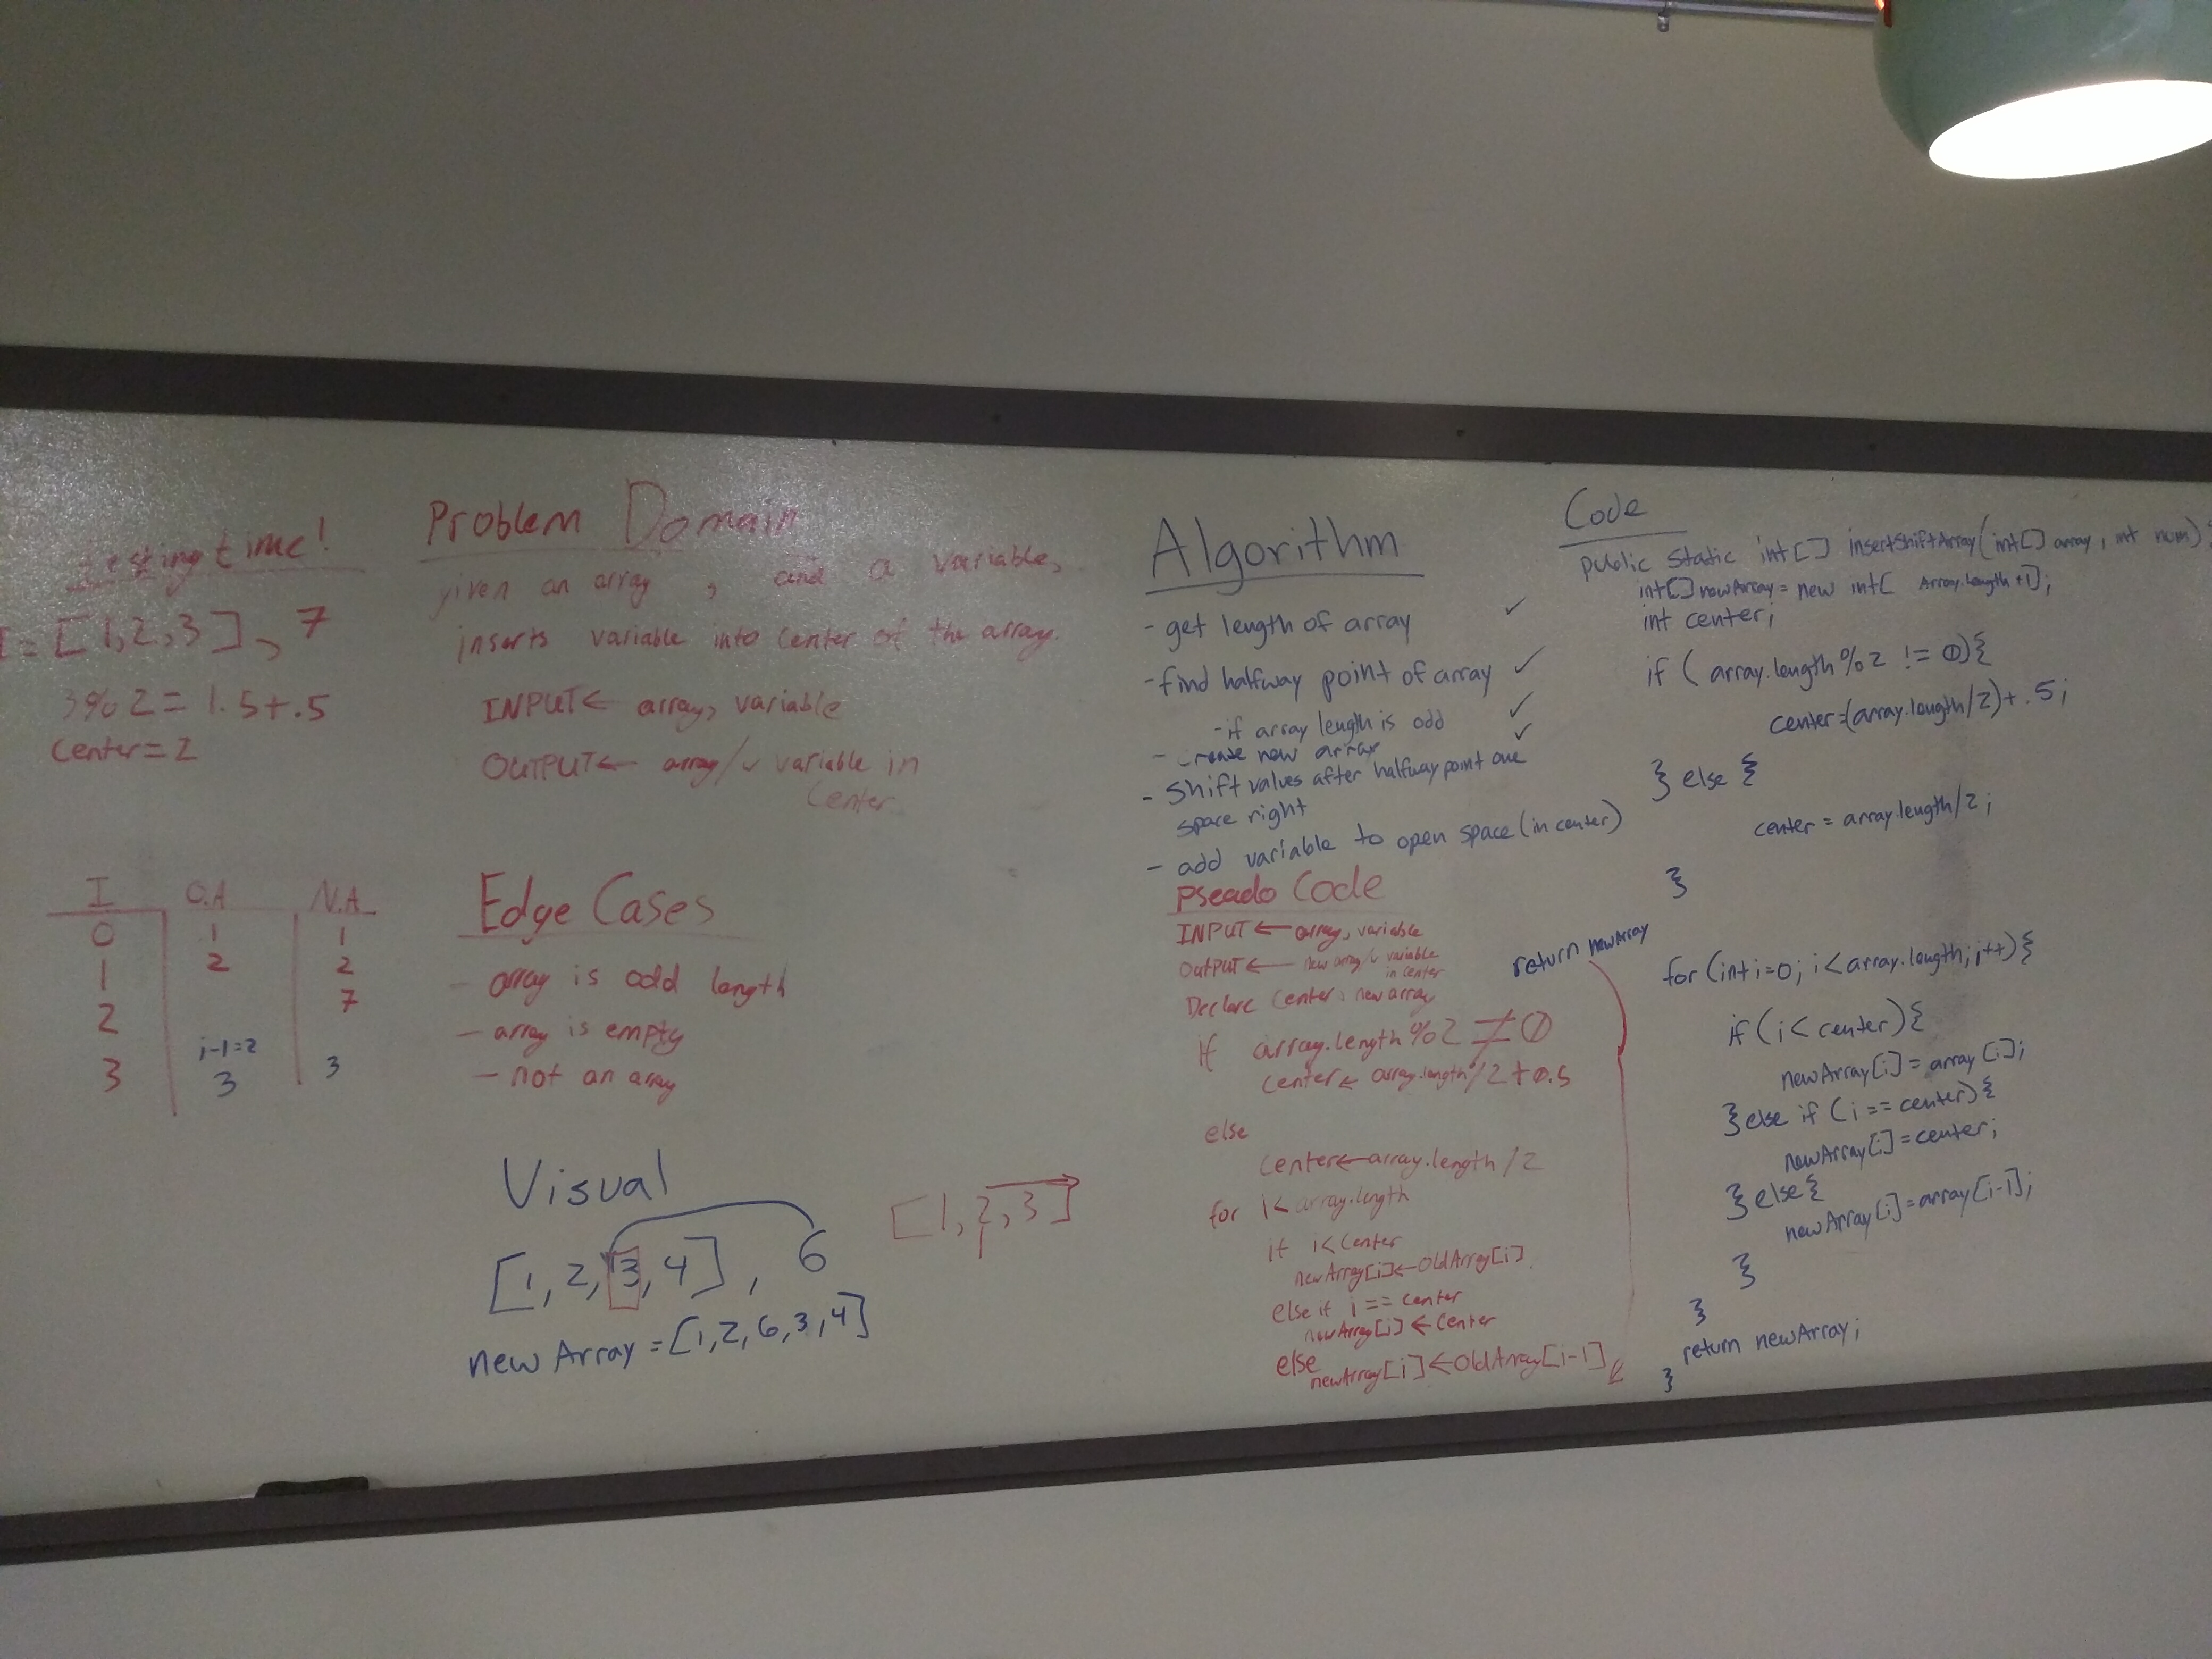 Testing time!
I = [1,2,3], 7
3%2 = 1.5+.5
center=2
I O.A N.A
0 1 1
1 2 2
2 7
i-1=2
3 3 3
Problem Domain
given an array, and a variable,
inserts variable into center of the array.
INPUT← array, variable
OUTPUT← array/w variable in
center
Edge Cases
- array is odd length
- array is empty
- not an aray
Visual
[1, 2, 3, 4], 6
newArray = [1,2,6,3,4]
[1, 2, 3]
Algorithm
- get length of array ✓
- find halfway point of array ✓
- if array length is odd ✓
- create new array ✓
- Shift values after halfway point one
space right
- add variable to open space (in center)
Pseado Code
INPUT ← array, variable
OUTPUT ← new array/w variable
in center
Declare center, new array
If array.length %2 ≠ 0
center ← array.length/2 + 0.5
else
center ← array.length /2
for i< array.length
if i< center
newArray[i] ← OldArray[i]
else if i == center
newArray[i] ← center
else
newArray[i] ← OldArray[i-1]
return newArray
Code
public static int[] insertShiftArray(int[] array, int num){
int[] newArray = new int[ Array.length +1];
int center;
if ( array.length % 2 != 0){
center=(array.length/2)+.5;
} else {
center = array.length/2;
}
for (int i=0; i<array.length; i++){
if (i< center){
newArray[i] = array[i];
}else if (i == center){
newArray[i] = center;
} else{
newArray[i] = array[i-1];
}
}
return newArray;
}